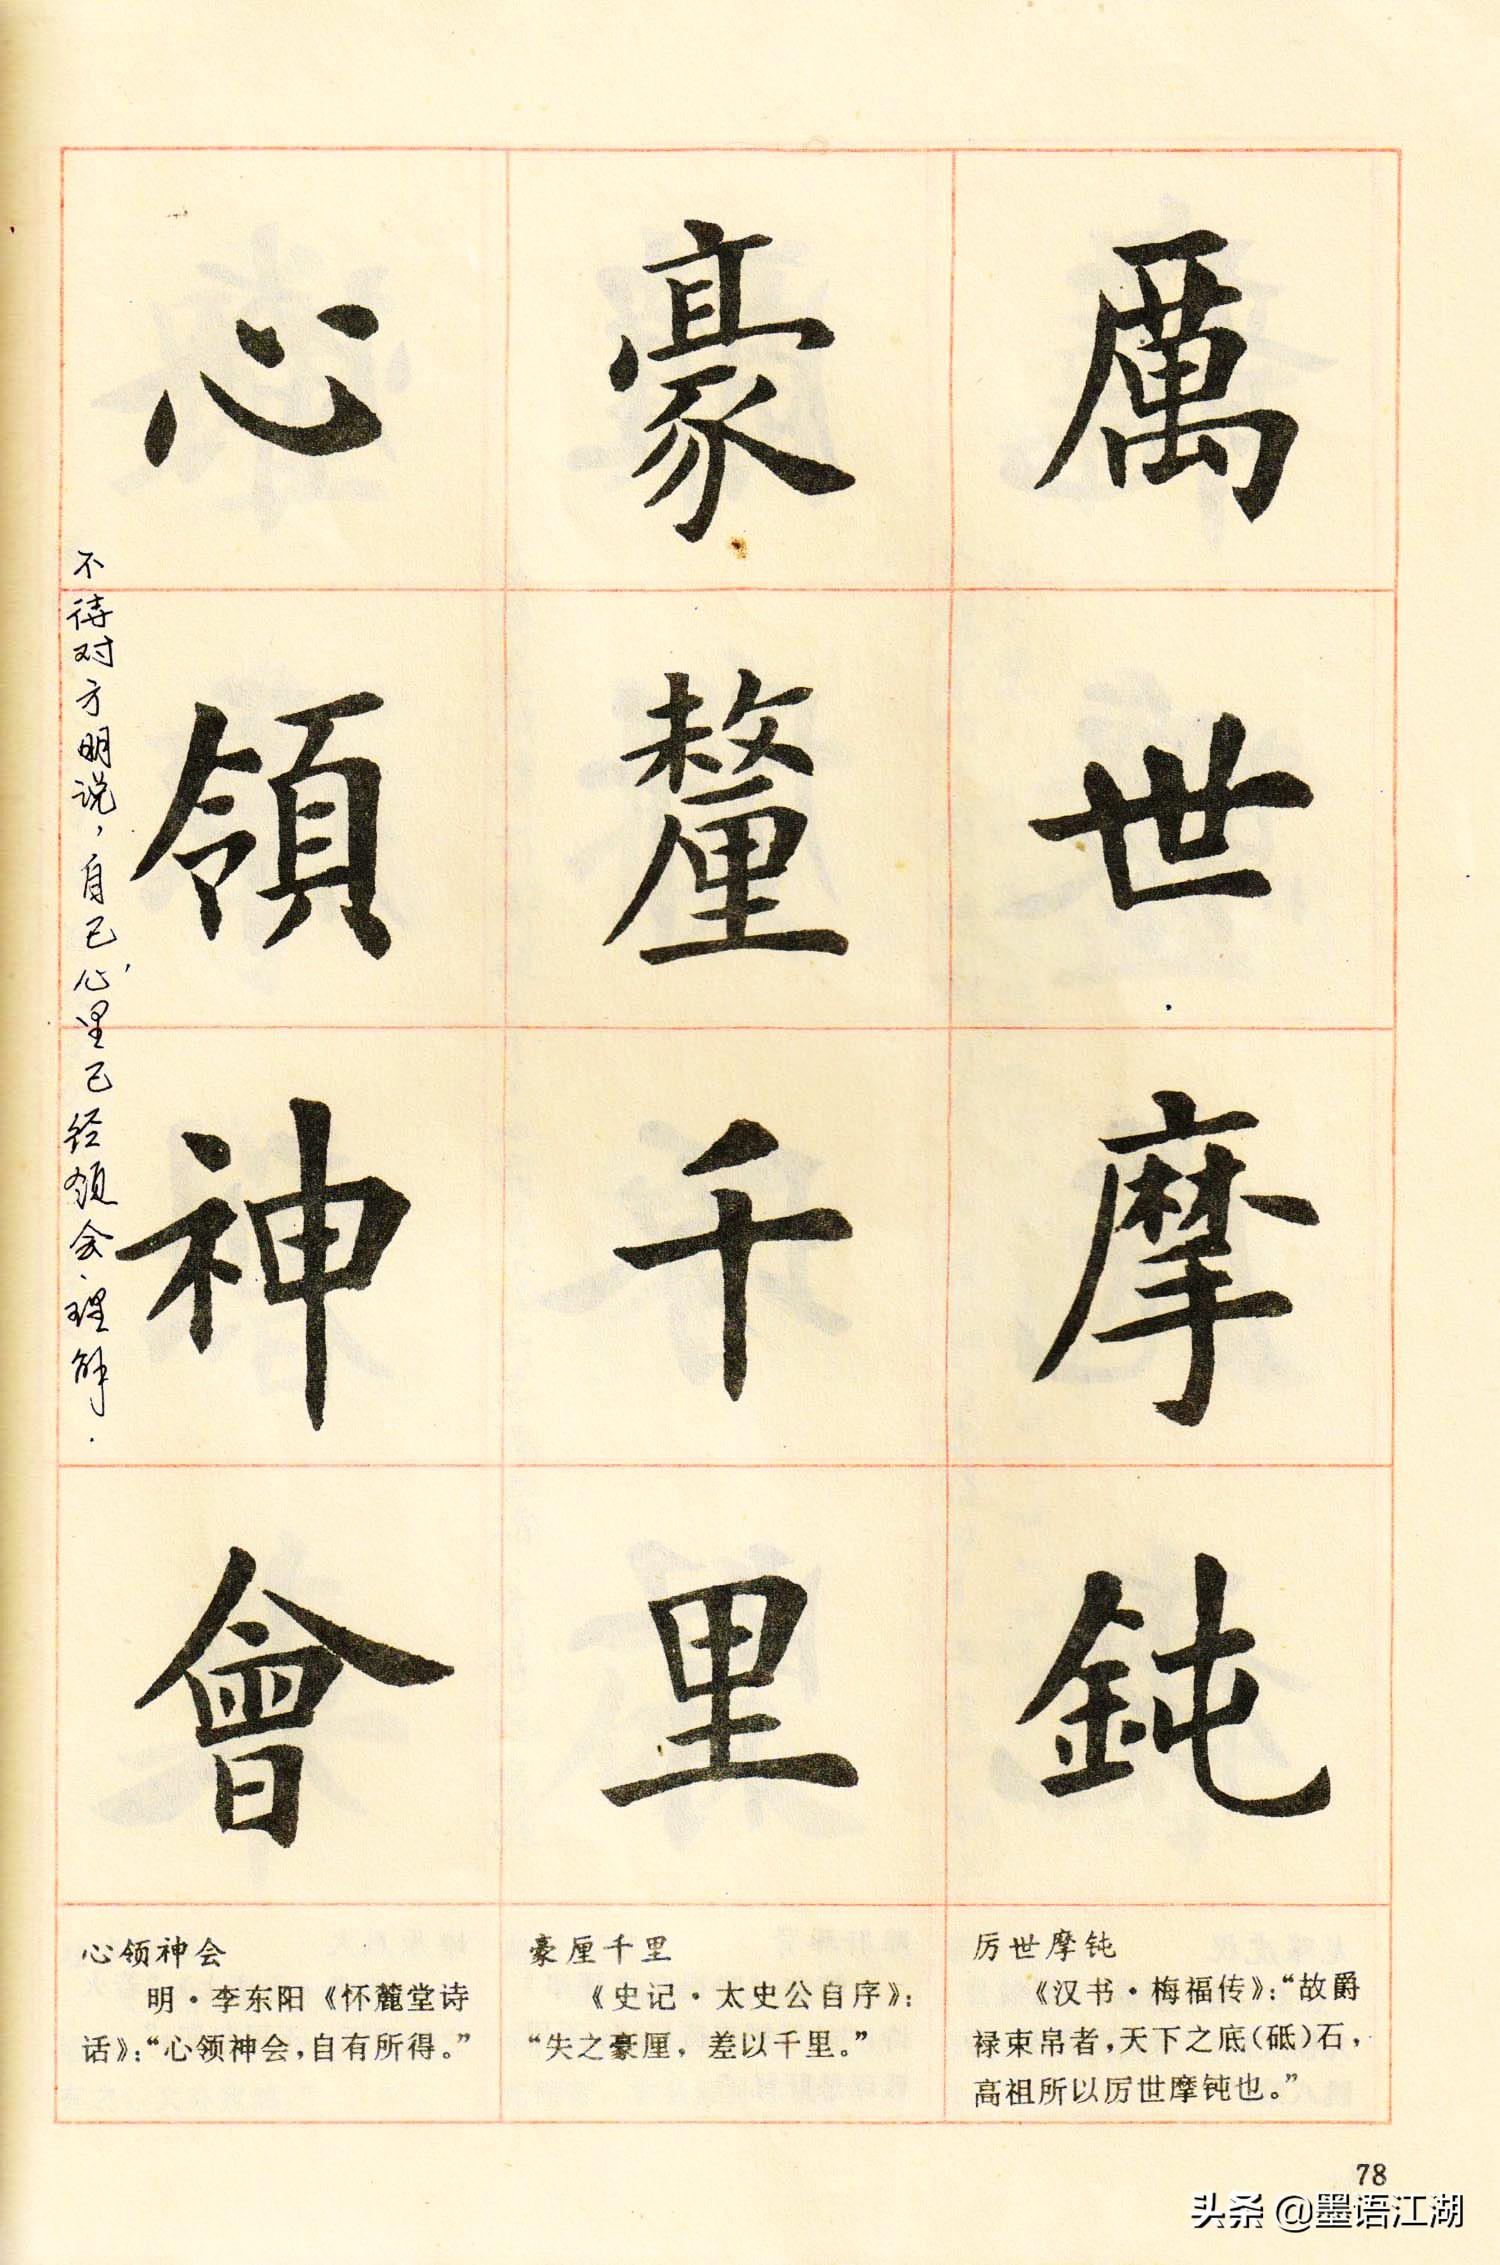 厲世摩鈍
豪釐千里
心領神會
不待对方明说，自己心里已经领会、理解．
厉世摩钝
《汉书·梅福传》：“故爵
禄束帛者，天下之底(砥)石，
高祖所以厉世摩钝也。”
豪厘千里
《史记·太史公自序》：
“失之豪厘，差以千里。”
心领神会
明·李东阳《怀麓堂诗
话》：“心领神会，自有所得。”
78
头条 @墨语江湖